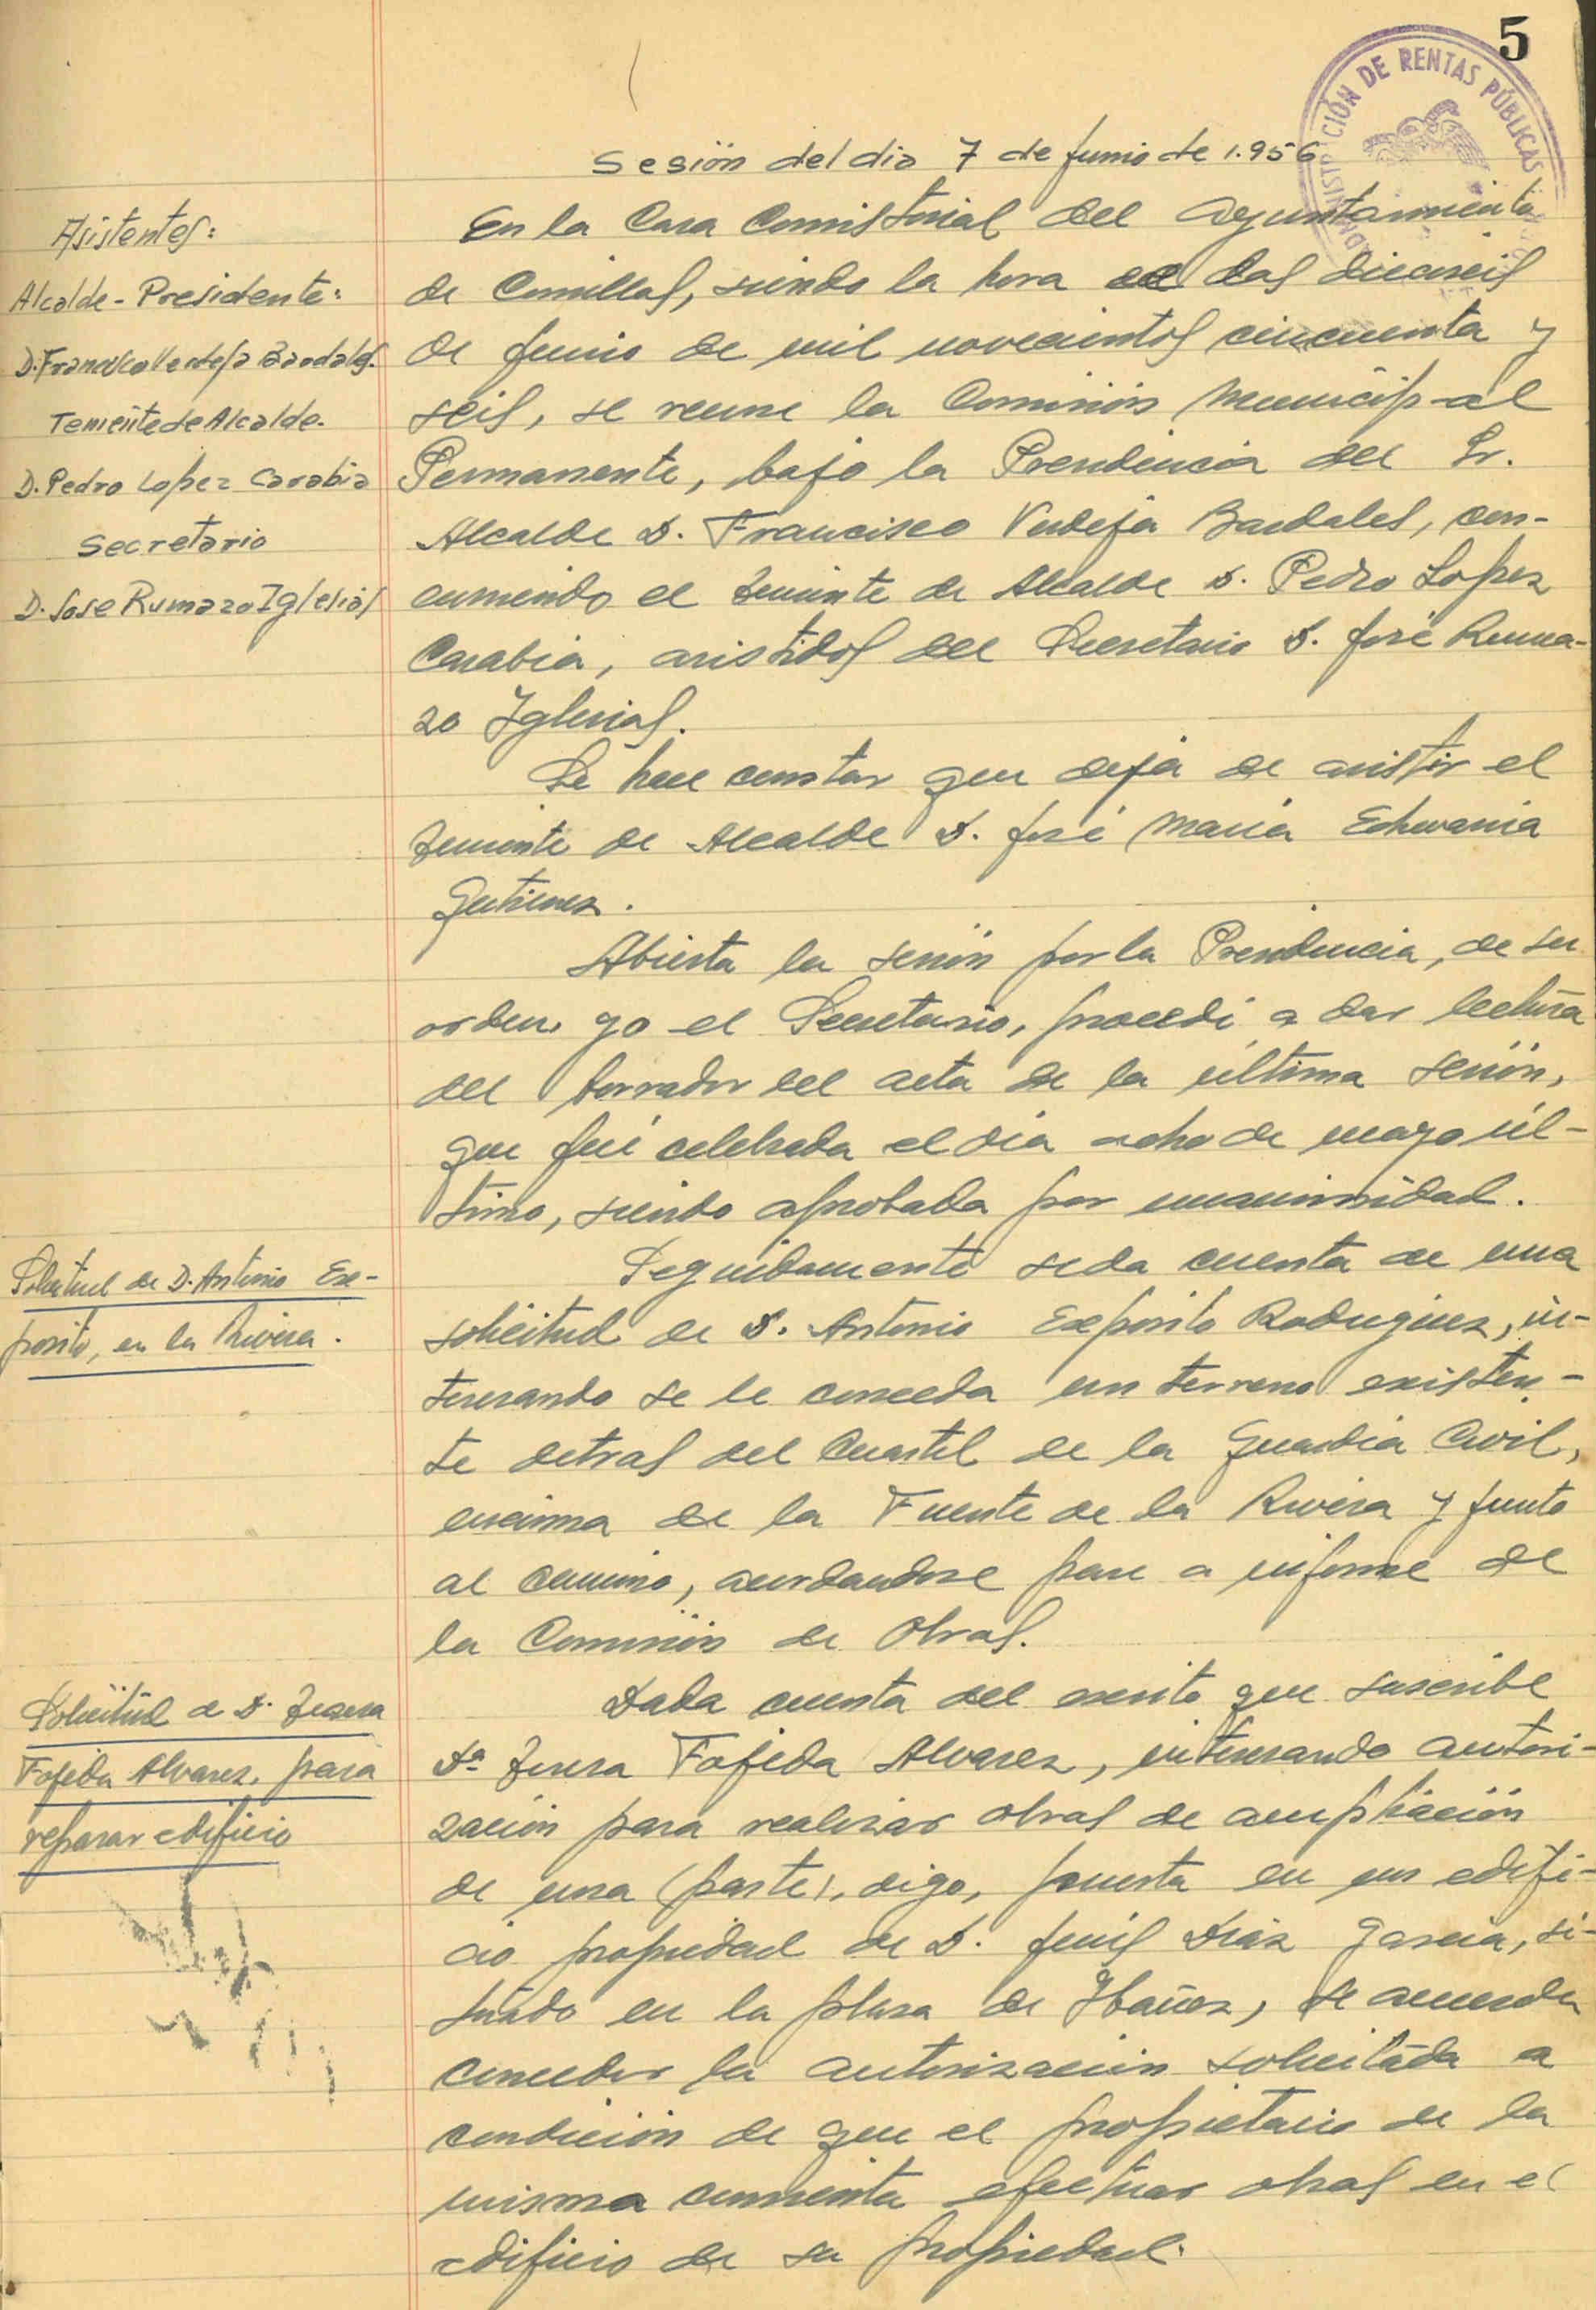 5
ADMINISTRACIÓN DE RENTAS PÚBLICAS
Sesión del dia 7 de Junio de 1.956
Asistentes:
Alcalde-Presidente:
D. Francisco Verdeja Bardales.
Teniente de Alcalde.
D. Pedro Lopez Carabia
Secretario
D. Jose Rumazo Iglesias
En la Casa Consistorial del Ayuntamiento
de Comillas, siendo la hora de las dieciseis
de Junio de mil novecientos cincuenta y
seis, se reune la Comisión Municipal
Permanente, bajo la Presidencia del Sr.
Alcalde D. Francisco Verdeja Bardales, con-
curriendo el Teniente de Alcalde D. Pedro Lopez
Carabia, asistidos del Secretario D. José Ruma-
zo Iglesias.
Se hace constar que deja de asistir el
Teniente de Alcalde D. José Maria Echevarria
Gutierrez.
Abierta la sesión por la Presidencia, de su
orden yo el Secretario, procedí a dar lectura
del borrador del acta de la última sesión,
que fué celebrada el dia ocho de mayo úl-
timo, siendo aprobada por unanimidad.
Solicitud de D. Antonio Ex-
posito, en la Rivera.
Seguidamente se da cuenta de una
solicitud de D. Antonio Exposito Rodriguez, in-
teresando se le conceda un terreno existen-
te detras del Cuartel de la Guardia Civil,
encima de la Fuente de la Rivera y junto
al camino, acordandose pase a informe de
la Comisión de Obras.
Solicitud de Dª Teresa
Fojeda Alvarez, para
reparar edificio
Dada cuenta del escrito que suscribe
Dª Teresa Fojeda Alvarez, interesando autori-
zación para realizar obras de ampliación
de una (parte), digo, puerta en un edifi-
cio propiedad de D. Jenís Diaz Garcia, si-
tuado en la plaza de Ibañez, se acuerda
conceder la autorización solicitada a
condición de que el propietario de la
misma consienta efectuar obras en el
edificio de su propiedad.